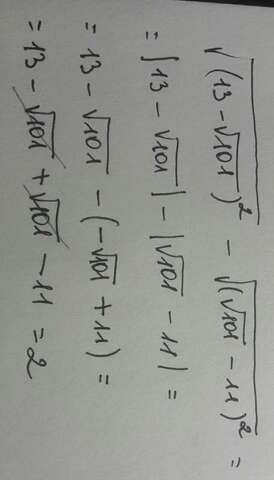 √(13-√101)² - √(√101 - 11)² =
= |13 - √101| - |√101 - 11| =
= 13 - √101 - (-√101 + 11) =
= 13 - √101 + √101 - 11 = 2